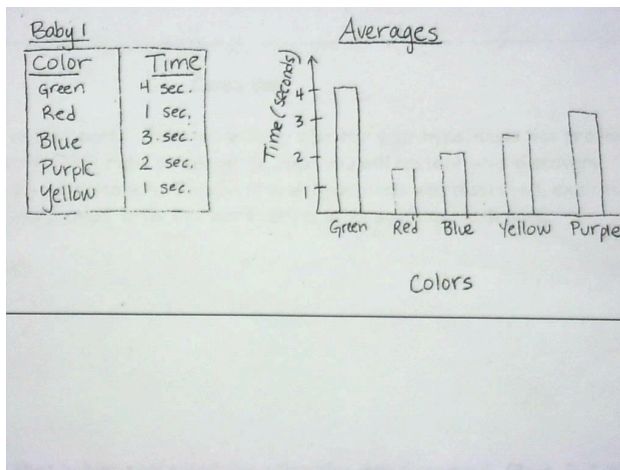 Baby 1
Color Time
Green 4 sec.
Red 1 sec.
Blue 3.sec.
Purple 2 sec.
Yellow 1 sec.
Averages
Time (seconds)
4
3
2
1
Green Red Blue Yellow Purple
Colors